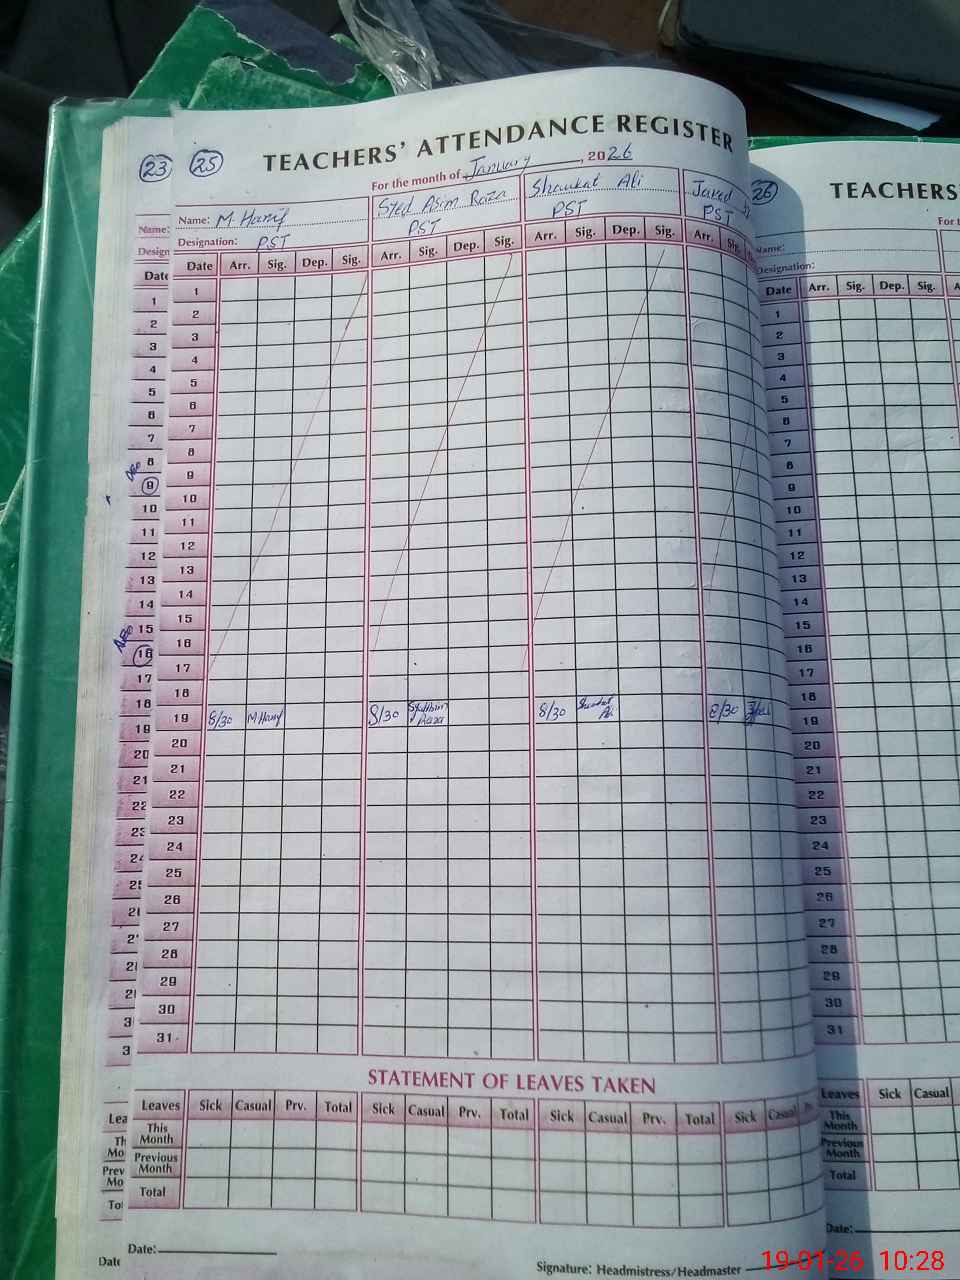 23 25 TEACHERS' ATTENDANCE REGISTER
For the month of January, 2026
Name: M Hanif Syed Asim Raza Shaukat Ali Javed
Designation: PST PST PST PST
Date Arr. Sig. Dep. Sig. Arr. Sig. Dep. Sig. Arr. Sig. Dep. Sig. Arr. Sig.
1
2
3
4
5
6
7
8
9
10
11
12
13
14
15
16
17
18
19 8/30 M Hanif 8/30 Raza 8/30 Shaukat Ali 8/30
20
21
22
23
24
25
26
27
28
29
30
31
STATEMENT OF LEAVES TAKEN
Leaves Sick Casual Prv. Total Sick Casual Prv. Total Sick Casual Prv. Total Sick Casual
This Month
Previous Month
Total
Date:
Signature: Headmistress/Headmaster
Name:
Design
Date
1
2
3
4
5
6
7
8
9
10
11
12
13
14
15
16
17
18
19
20
21
22
26 TEACHERS'
For t
Name:
Designation:
Date Arr. Sig. Dep. Sig. A
1
2
3
4
5
6
7
8
9
10
11
12
13
14
15
16
17
18
19
20
21
22
23
24
25
26
27
28
29
30
31
Leaves Sick Casual
This Month
Previous Month
Total
Date:
19-01-26 10:28